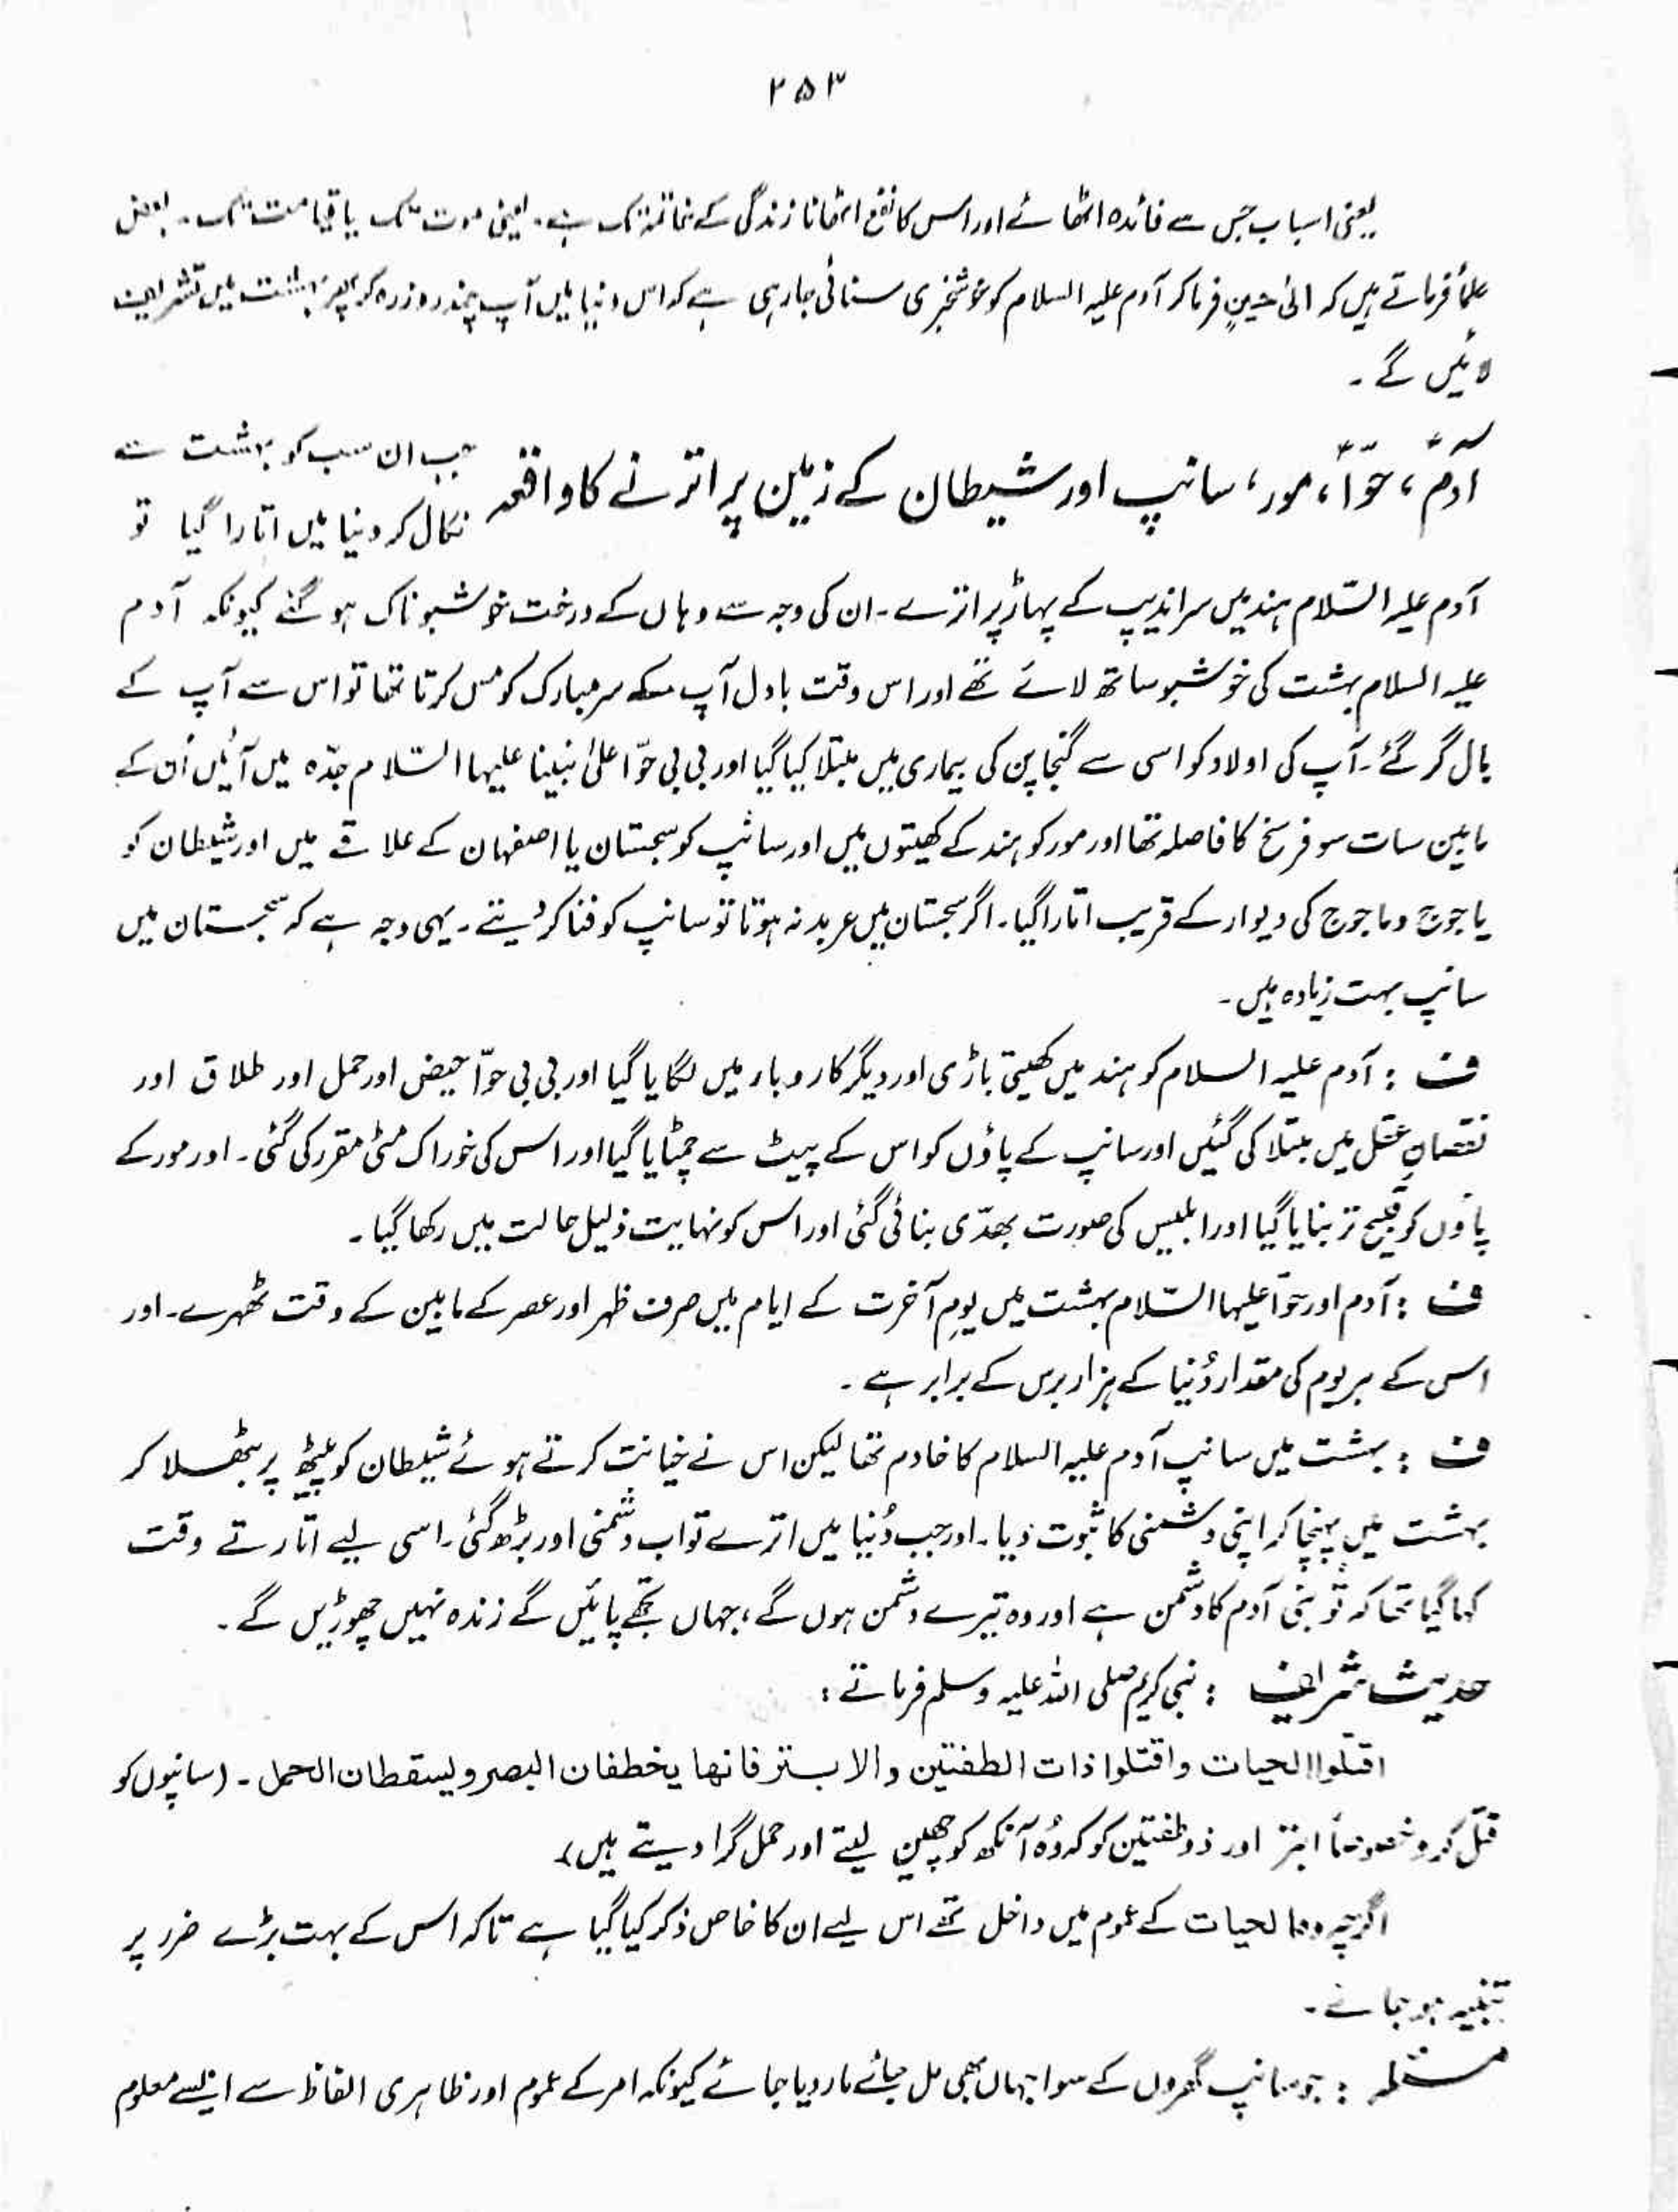 ۲۵۳
یعنی اسباب جس سے فائدہ اٹھائے اور اس کا نفع اٹھانا زندگی کے خاتمہ تک ہے۔ یعنی موت تک یا قیامت تک۔ بعض
علماء فرماتے ہیں کہ الیٰ حینٍ فرما کر آدم علیہ السلام کو خوشخبری سنائی جا رہی ہے کہ اس دنیا میں آپ چند روز رہ کر پھر بہشت میں تشریف
لائیں گے۔
آدمؑ، حوّاؑ، مور، سانپ اور شیطان کے زمین پر اترنے کا واقعہ جب ان سب کو بہشت سے
نکال کر دنیا میں اتارا گیا تو
آدم علیہ السّلام ہند میں سراندیپ کے پہاڑ پر اترے۔ ان کی وجہ سے وہاں کے درخت خوشبوناک ہو گئے کیونکہ آدم
علیہ السلام بہشت کی خوشبو ساتھ لائے تھے اور اس وقت بادل آپ کے سر مبارک کو مس کرتا تھا تو اس سے آپ کے
بال گر گئے۔ آپ کی اولاد کو اسی سے گنجاپن کی بیماری میں مبتلا کیا گیا اور بی بی حوّا علیٰ نبینا علیہا السّلام جدّہ میں آئیں اُن کے
مابین سات سو فرسخ کا فاصلہ تھا اور مور کو ہند کے کھیتوں میں اور سانپ کو سجستان یا اصفہان کے علاقے میں اور شیطان کو
یاجوج وماجوج کی دیوار کے قریب اتارا گیا۔ اگر سجستان میں عربد نہ ہوتا تو سانپ کو فنا کر دیتے۔ یہی وجہ ہے کہ سجستان میں
سانپ بہت زیادہ ہیں۔
ف : آدم علیہ السلام کو ہند میں کھیتی باڑی اور دیگر کاروبار میں لگایا گیا اور بی بی حوّا حیض اور حمل اور طلاق اور
نقصانِ عقل میں مبتلا کی گئیں اور سانپ کے پاؤں کو اس کے پیٹ سے چمٹایا گیا اور اس کی خوراک مٹی مقرر کی گئی۔ اور مور کے
پاؤں کو قبیح تر بنایا گیا اور ابلیس کی صورت بھدّی بنائی گئی اور اس کو نہایت ذلیل حالت میں رکھا گیا۔
ف : آدم اور حوّا علیہما السّلام بہشت میں یومِ آخرت کے ایام میں صرف ظہر اور عصر کے مابین کے وقت ٹھہرے۔ اور
اس کے ہر یوم کی مقدار دُنیا کے ہزار برس کے برابر ہے۔
ف : بہشت میں سانپ آدم علیہ السلام کا خادم تھا لیکن اس نے خیانت کرتے ہوئے شیطان کو پیٹھ پر بٹھلا کر
بہشت میں پہنچا کر اپنی دشمنی کا ثبوت دیا۔ اور جب دُنیا میں اترے تو اب دشمنی اور بڑھ گئی۔ اسی لیے اتارتے وقت
کہا گیا تھا کہ تو بنی آدم کا دشمن ہے اور وہ تیرے دشمن ہوں گے، جہاں تجھے پائیں گے زندہ نہیں چھوڑیں گے۔
حدیث شریف : نبی کریم صلی اللہ علیہ وسلم فرماتے :
اقتلوا الحیات واقتلوا ذات الطفتین والابتر فانھا یخطفان البصر ویسقطان الحمل۔ (سانپوں کو
قتل کرو خصوصاً ابتر اور ذوطفتین کو کہ وُہ آنکھ کو چھین لیتے اور حمل گرا دیتے ہیں)
اگرچہ وہ الحیات کے عموم میں داخل تھے اس لیے ان کا خاص ذکر کیا گیا ہے تاکہ اس کے بہت بڑے ضرر پر
تنبیہ ہو جائے۔
مسئلہ : جو سانپ گھروں کے سوا جہاں بھی مل جائے مار دیا جائے کیونکہ امر کے عموم اور ظاہری الفاظ سے ایسے معلوم